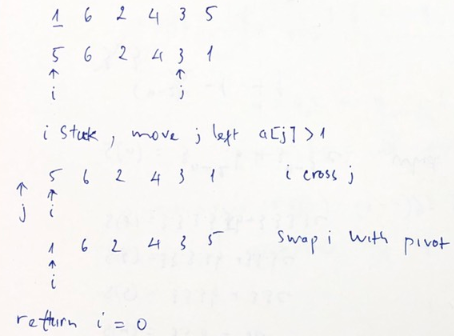 1 6 2 4 3 5
5 6 2 4 3 1
↑ ↑
i j
i stuck, move j left a[j] > 1
5 6 2 4 3 1 i cross j
↑ ↑
j i
1 6 2 4 3 5 swap i with pivot
↑
i
return i = 0